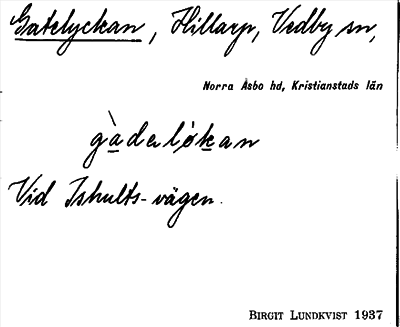 Gatelyckan, Hillarp, Vedby sn,
Norra Åsbo hd, Kristianstads län
gàdelỏkan
Vid Ishults-vägen.
BIRGIT LUNDKVIST 1937